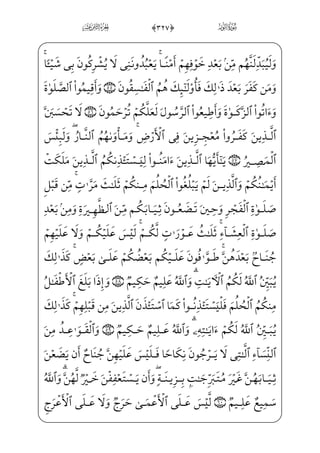 سُورَةُ النُّورِ ﴿٣٢٧﴾ الجُزْءُ الثَّامِنَ عَشَرَ
وَلَيُبَدِّلَنَّهُم مِّنۢ بَعْدِ خَوْفِهِمْ أَمْنًاۚ يَعْبُدُونَنِى لَا يُشْرِكُونَ بِى شَيْـًٔاۚ
وَمَن كَفَرَ بَعْدَ ذَٰلِكَ فَأُو۟لَٰٓئِكَ هُمُ ٱلْفَٰسِقُونَ ۝ وَأَقِيمُوا۟ ٱلصَّلَوٰةَ
وَءَاتُوا۟ ٱلزَّكَوٰةَ وَأَطِيعُوا۟ ٱلرَّسُولَ لَعَلَّكُمْ تُرْحَمُونَ ۝ لَا تَحْسَبَنَّ
ٱلَّذِينَ كَفَرُوا۟ مُعْجِزِينَ فِى ٱلْأَرْضِۚ وَمَأْوَىٰهُمُ ٱلنَّارُۖ وَلَبِئْسَ
ٱلْمَصِيرُ ۝ يَٰٓأَيُّهَا ٱلَّذِينَ ءَامَنُوا۟ لِيَسْتَـْٔذِنكُمُ ٱلَّذِينَ مَلَكَتْ
أَيْمَٰنُكُمْ وَٱلَّذِينَ لَمْ يَبْلُغُوا۟ ٱلْحُلُمَ مِنكُمْ ثَلَٰثَ مَرَّٰتٍۚ مِّن قَبْلِ
صَلَوٰةِ ٱلْفَجْرِ وَحِينَ تَضَعُونَ ثِيَابَكُم مِّنَ ٱلظَّهِيرَةِ وَمِنۢ بَعْدِ
صَلَوٰةِ ٱلْعِشَآءِۚ ثَلَٰثُ عَوْرَٰتٍ لَّكُمْۚ لَيْسَ عَلَيْكُمْ وَلَا عَلَيْهِمْ
جُنَاحٌۢ بَعْدَهُنَّۚ طَوَّٰفُونَ عَلَيْكُم بَعْضُكُمْ عَلَىٰ بَعْضٍۚ كَذَٰلِكَ
يُبَيِّنُ ٱللَّهُ لَكُمُ ٱلْءَايَٰتِۗ وَٱللَّهُ عَلِيمٌ حَكِيمٌ ۝ وَإِذَا بَلَغَ ٱلْأَطْفَٰلُ
مِنكُمُ ٱلْحُلُمَ فَلْيَسْتَـْٔذِنُوا۟ كَمَا ٱسْتَـْٔذَنَ ٱلَّذِينَ مِن قَبْلِهِمْۚ كَذَٰلِكَ
يُبَيِّنُ ٱللَّهُ لَكُمْ ءَايَٰتِهِۦۗ وَٱللَّهُ عَلِيمٌ حَكِيمٌ ۝ وَٱلْقَوَٰعِدُ مِنَ
ٱلنِّسَآءِ ٱلَّٰتِى لَا يَرْجُونَ نِكَاحًا فَلَيْسَ عَلَيْهِنَّ جُنَاحٌ أَن يَضَعْنَ
ثِيَابَهُنَّ غَيْرَ مُتَبَرِّجَٰتٍۭ بِزِينَةٍۖ وَأَن يَسْتَعْفِفْنَ خَيْرٌ لَّهُنَّۗ وَٱللَّهُ
سَمِيعٌ عَلِيمٌ ۝ لَّيْسَ عَلَى ٱلْأَعْمَىٰ حَرَجٌ وَلَا عَلَى ٱلْأَعْرَجِ